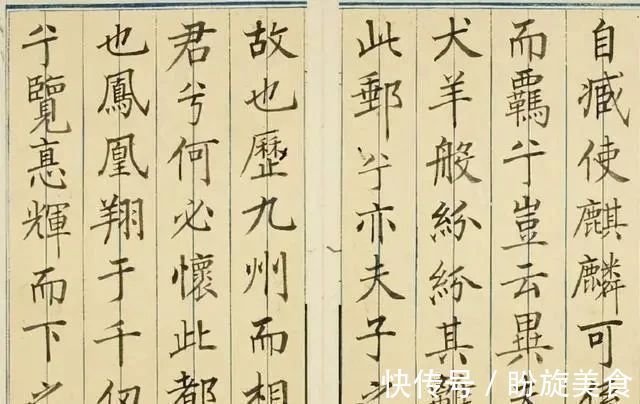 自臧使麒麟可係
而羈兮豈云異
犬羊般紛紛其離
此郵兮亦夫子之
故也歷九州而相
君兮何必懷此都
也鳳凰翔于千仞
兮覽悳輝而下之
快传号 / 盼旋美食